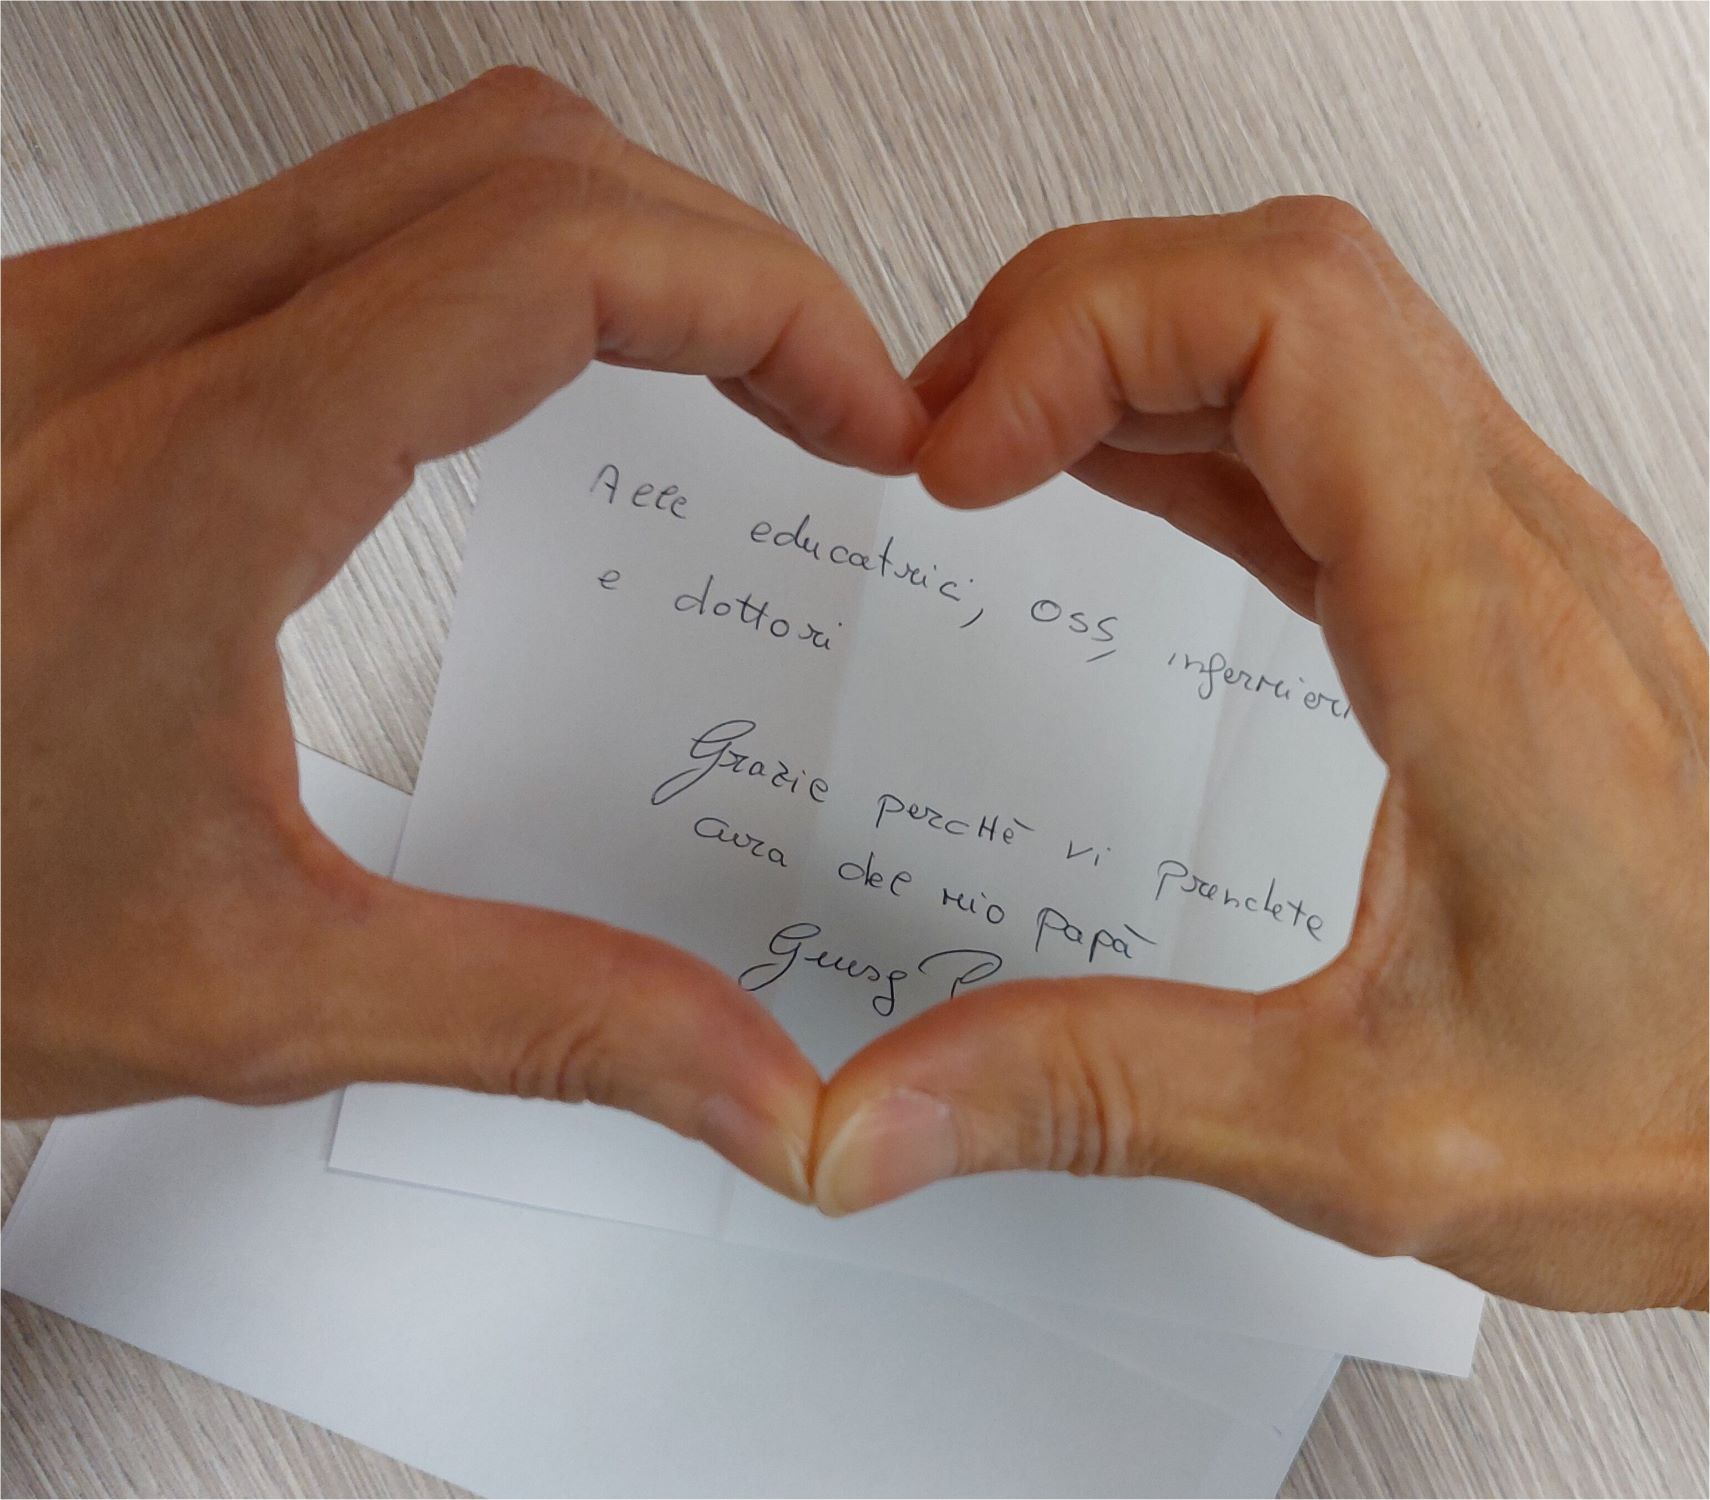 Alle educatrici, OSS, infermieri
e dottori
Grazie perchè vi prendete
cura del mio papà
Giusy